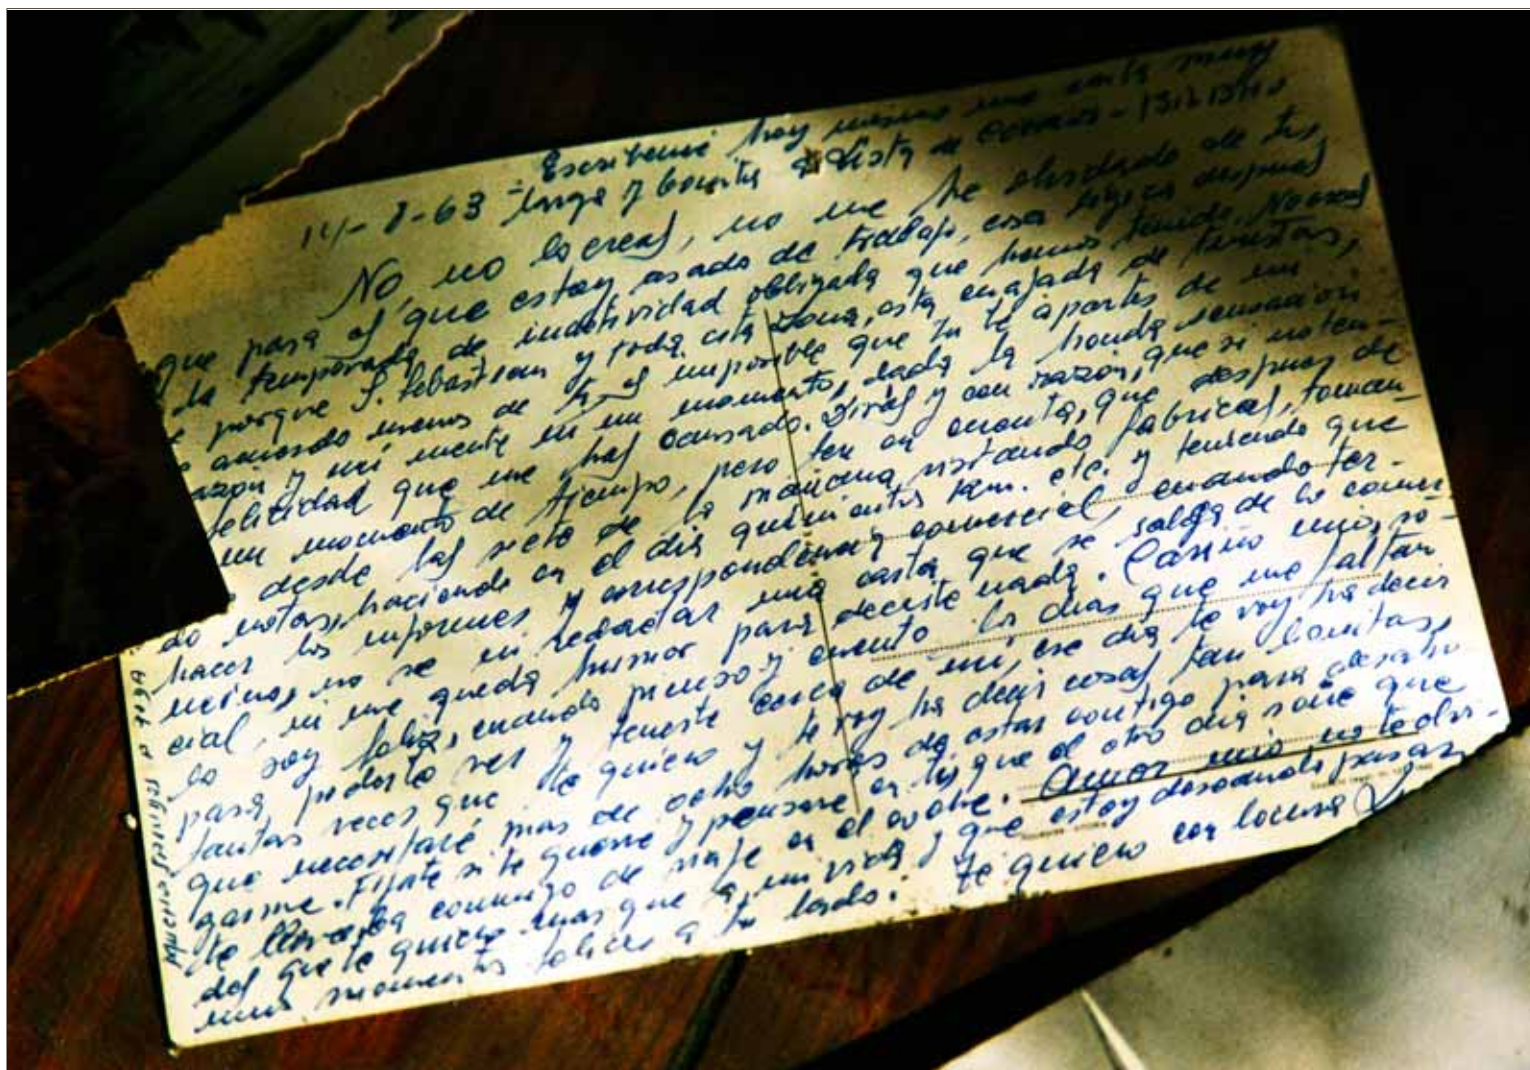 Escribeme hoy mismo una carta muy
14-8-63 - larga y bonita a Lista de Correos -
No, no lo creas, no me he olvidado de ti,
que pasa es que estoy asado de trabajo, cosa lógica despues
la temporada de inactividad obligada que hemos tenido. No
porque S. Sebastian y toda esta zona, esta cuajada de turistas,
acuerdo menos de ti, es imposible que tu te apartes de mi
azón y mi mente ni un momento, dada la honda sensación
felicidad que me has causado. Dirás y con razón, que si no ten-
un momento de tiempo, pero ten en cuenta, que despues de
desde las siete de la mañana, visitando fabricas, toman-
do notas, haciendo en el dia quinientos km. etc. y teniendo que
hacer los informes y correspondencia comercial, cuando ter-
mino, no se ni redactar una carta que se salga de lo comer-
cial, ni me queda humor para decirte nada. Cariño mio, so-
lo soy feliz, cuando pienso y cuento los dias que me faltan
para poderte ver y tenerte cerca de mi, ese dia te voy ha decir
tantas veces que te quiero y te voy ha decir cosas tan bonitas,
que necesitaré mas de ocho horas de estar contigo para desaho-
garme. Fijate si te querré y pensaré en ti, que el otro dia soñé que
te llevaba conmigo de viaje en el coche. Amor mio, no te olvi-
des que te quiero mas que a mi vida y que estoy deseando pasar
unos momentos felices a tu lado. Te quiero con locura